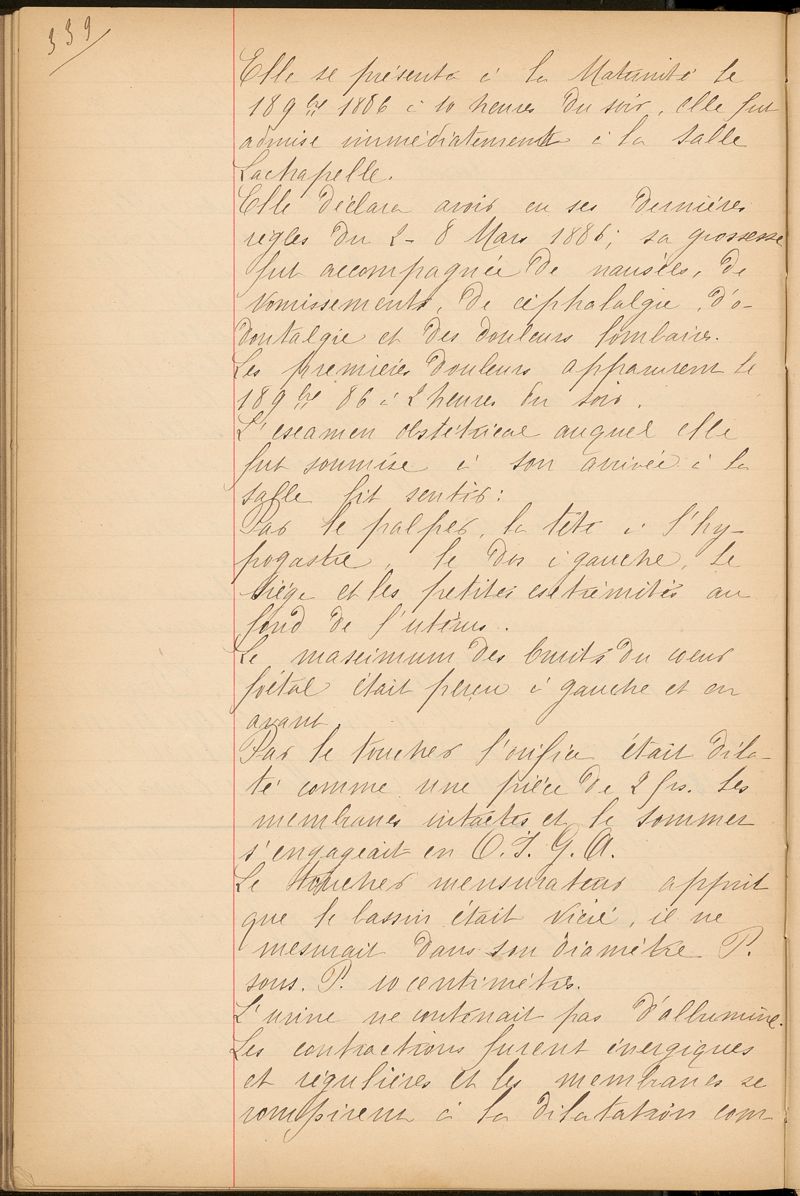 339
Elle se présenta à la Maternité le
18 9bre 1886 à 10 heures du soir, elle fut
admise immédiatement à la salle
Lachapelle.
Elle déclara avoir eu ses dernières
règles du 2-8 Mars 1886; sa grossesse
fut accompagnée de nausées, de
vomissements, de céphalalgie, d'o-
dontalgie et des douleurs lombaires.
Les premières douleurs apparurent le
18 9bre 86 à 2 heures du soir.
L'examen obstétrical auquel elle
fut soumise à son arrivée à la
salle fit sentir:
Par le palper, la tête à l'hy-
pogastre, le dos à gauche, le
siège et les petites extrémités au
fond de l'utérus.
Le maximum des bruits du coeur
foetal était perçu à gauche et en
avant.
Par le toucher l'orifice était dila-
té comme une pièce de 2 frs. Les
membranes intactes et le sommet
s'engageait en O.I.G.A.
Le toucher mensurateur apprit
que le bassin était vicié, il ne
mesurait dans son diamètre P.
sous. P. 10 centimètres.
L'urine ne contenait pas d'albumine.
Les contractions furent énergiques
et régulières et les membranes se
rompirent à la dilatation com-